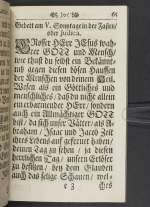 65
Gebet am V. Sonntage in der Fasten/
oder Judica.
GRoſſer HErr JEſus wah-
rer GOTT und Menſch/
wie thuſt du ſelbſt ein Bekännt-
nuß gegen dieſen böſen Hauffen
der Menſchen von deinem
Weſen als ein Göttliches und
menſchliches/ daß du nicht allein
ein erbarmender HErr/ ſondern
auch ein Allmächtiger GOTT
biſt/ da ſich unſer Vätter/ als Ab-
raham/ Iſaac und Jacob Zeit
ihres Lebens auf gefreuet haben/
deinen Tag zu ſehen/ in dieſen
herrlichen Tag/ unſern Erlöſer
zu beſitzen/ bey dem Glauben
auch das ſelige Schauen/ wel-
e 3 ches